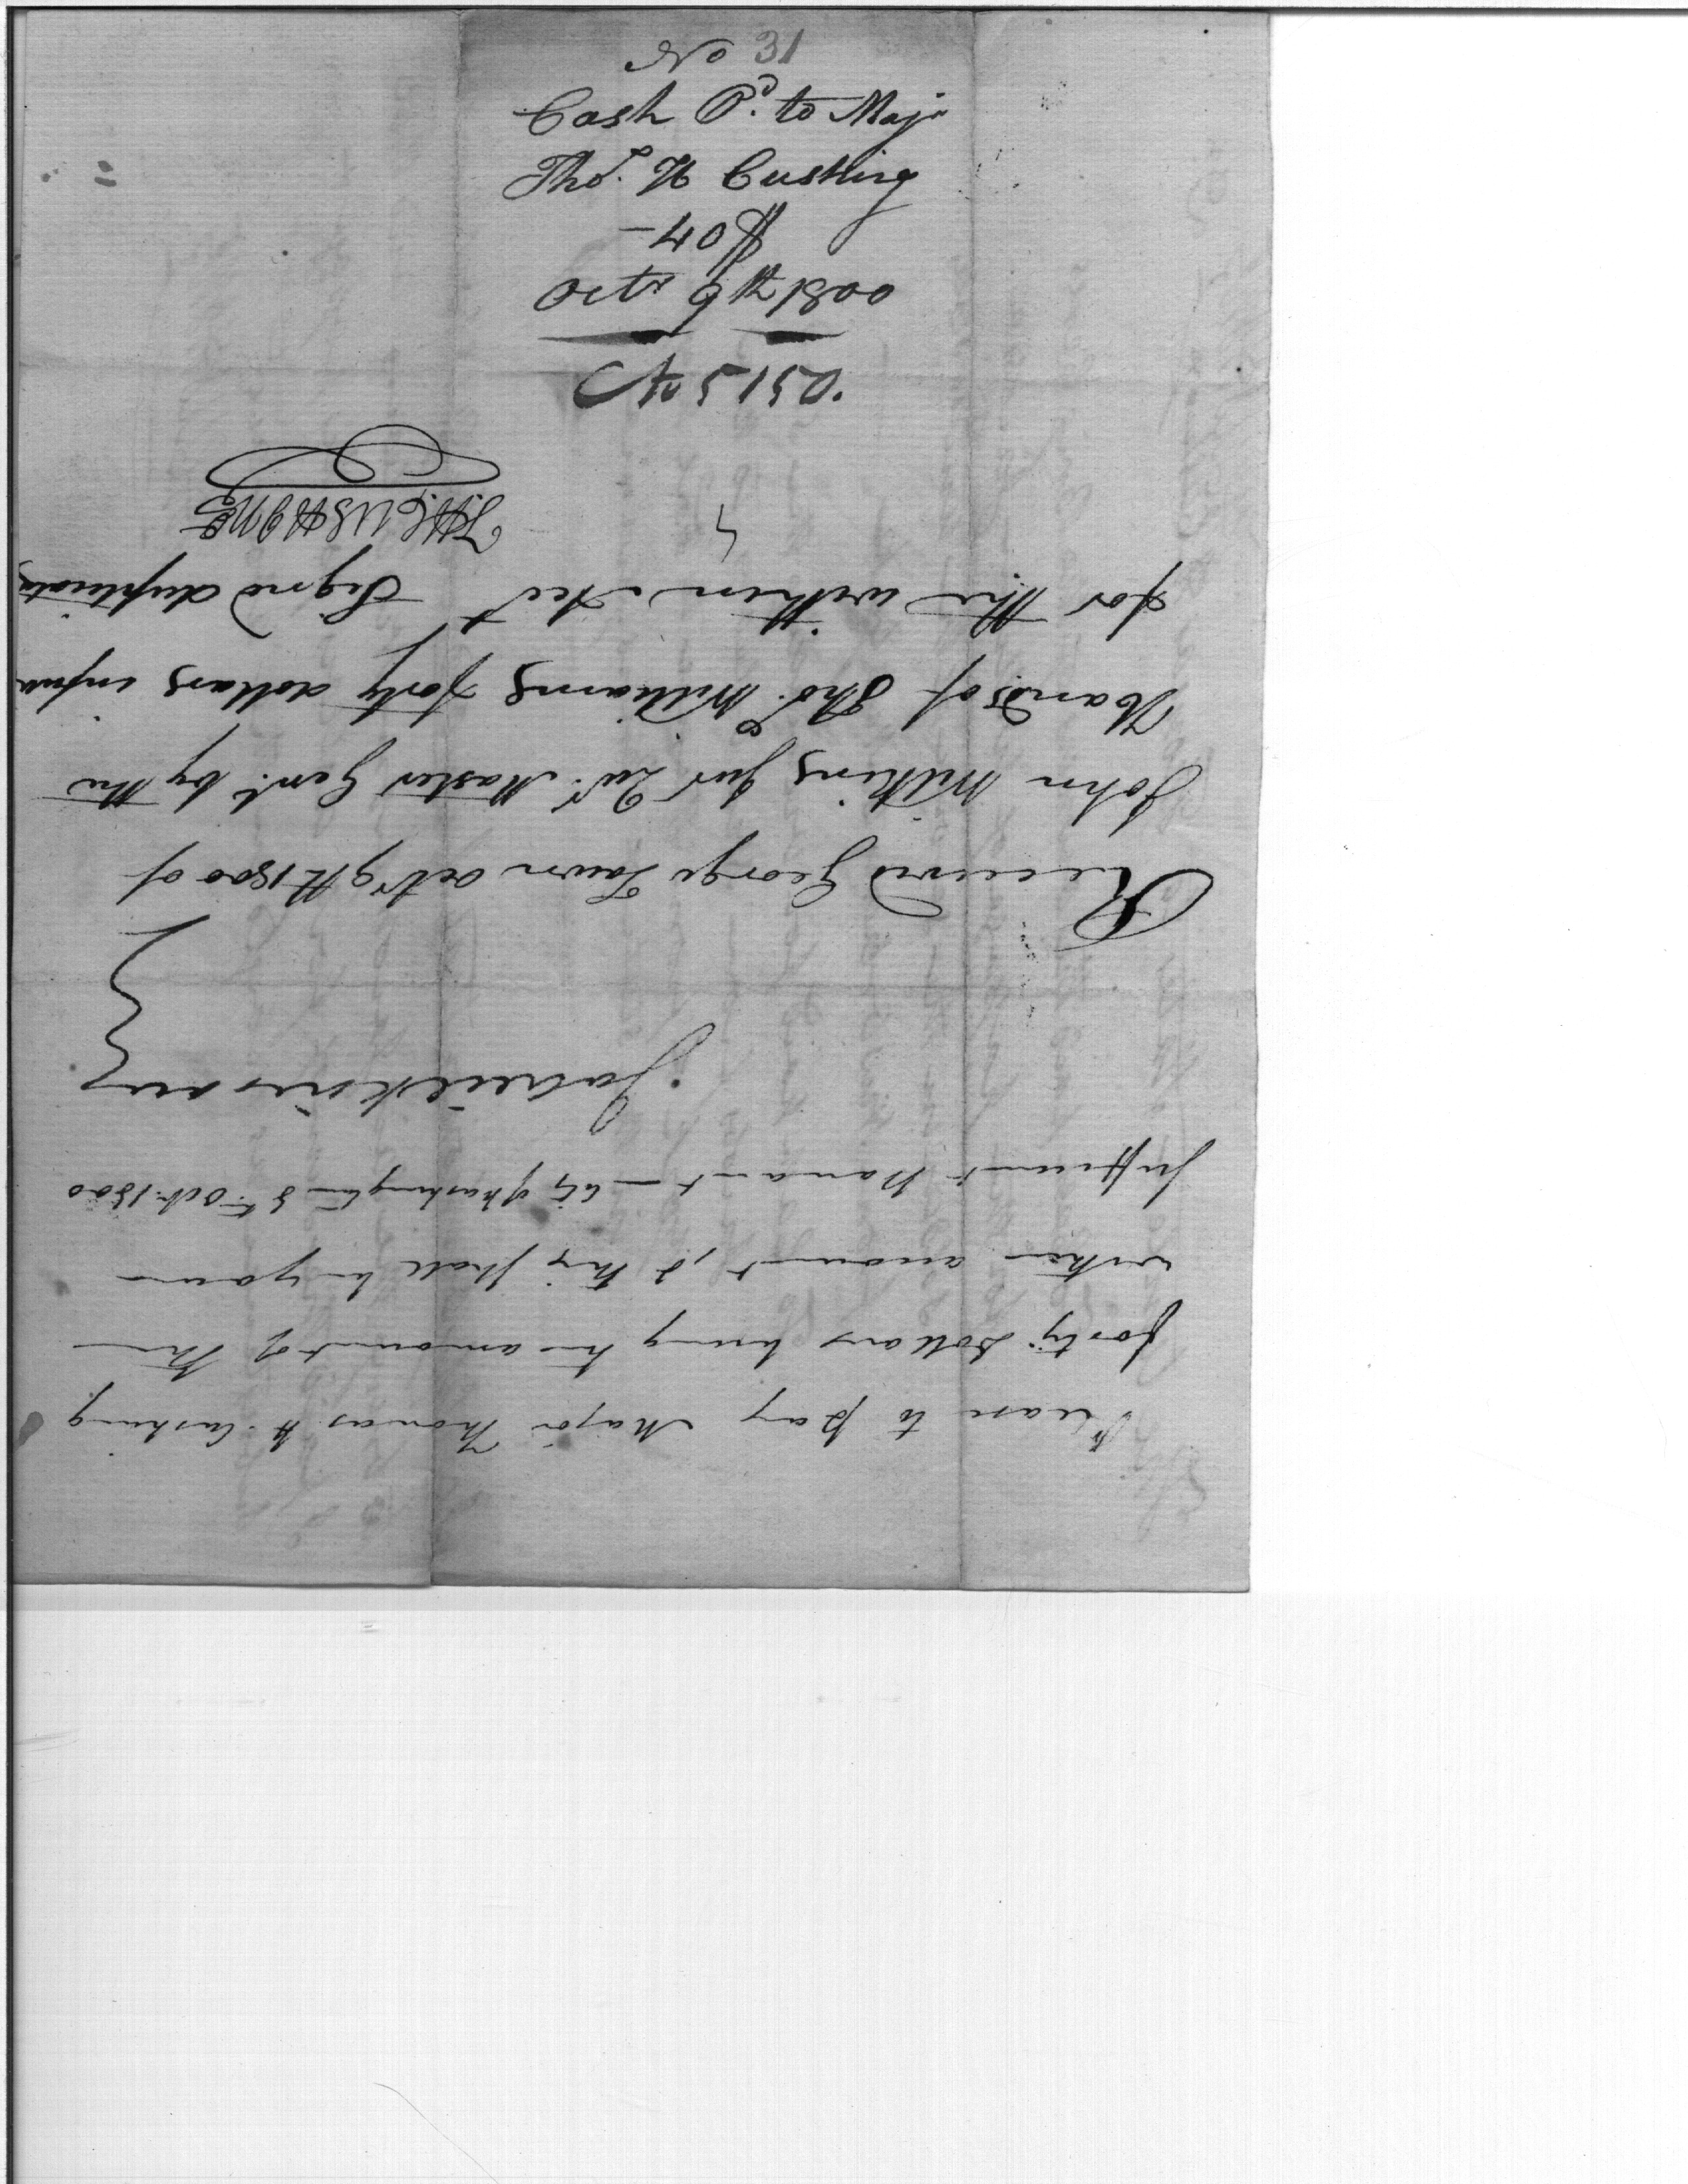 Sir
Please to pay Major Thomas H. Cushing
forty Dollars being the amount of the
within account, & this shall be your
sufficient Warrant — City of Washington 8th Octr. 1800
Ja Wilkinson
Received George Town octr 9th 1800 of
John Wilkins Junr Qur. Master Genl. by the
Hands of Thos. Williams forty dollars in full
for the within Acct Signd duplicates
T.H. CUSHING
No 31
Cash Pd. to Majr
Thos. H Cushing
$40–
octr 9th 1800